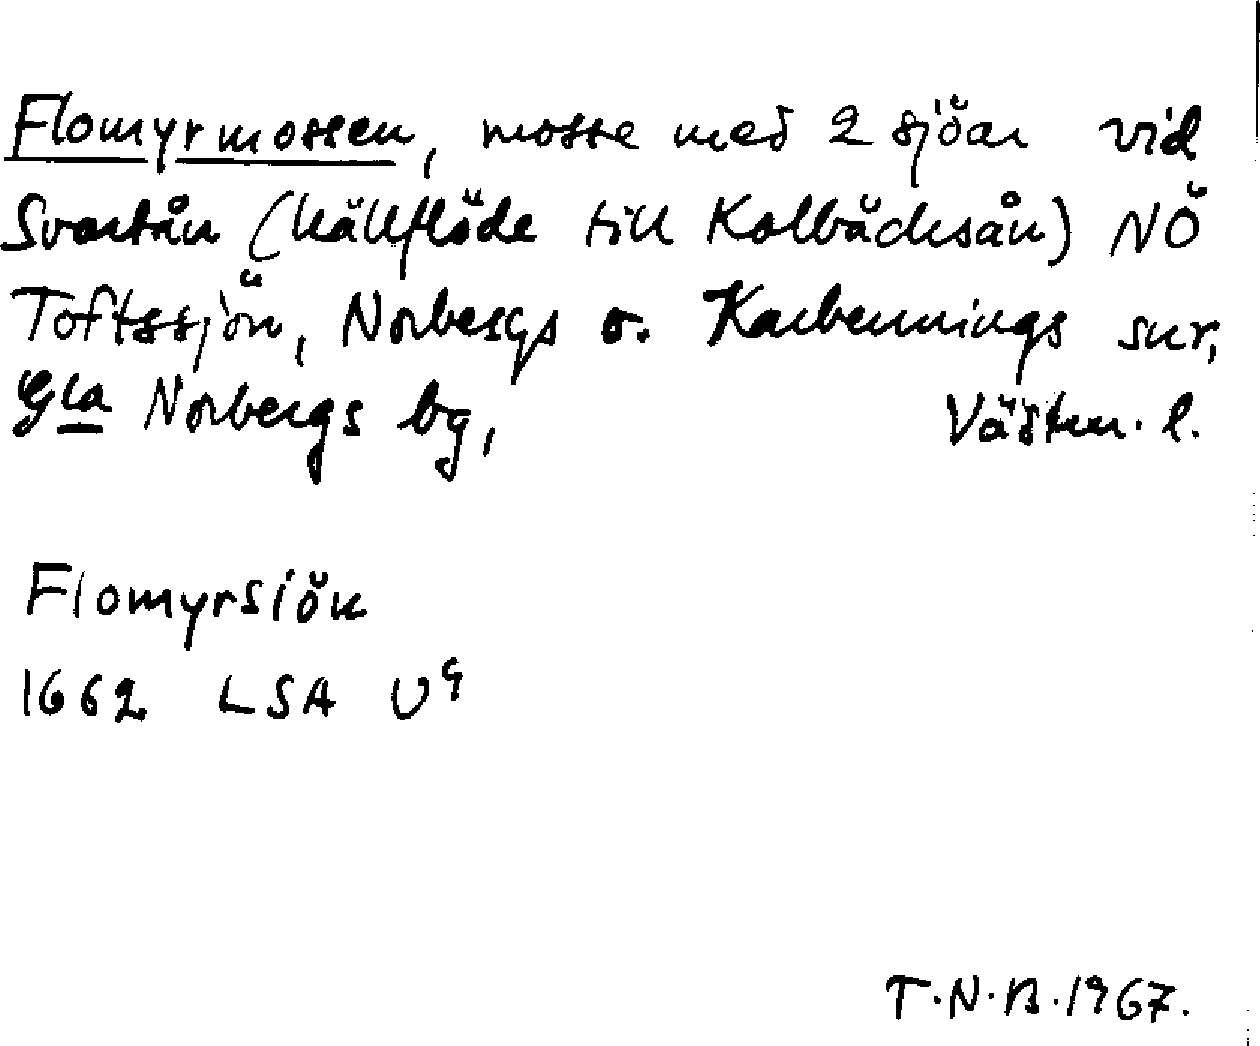 Flomyrmossen, mosse med 2 sjöar vid
Svartån (källflöde till Kolbäcksån) NÖ
Toftssjön, Norbergs o. Karbennings snr,
Gla Norbergs bg, Västm. l.
Flomyrsiön
1662 LSA U9
T.N.B.1967.